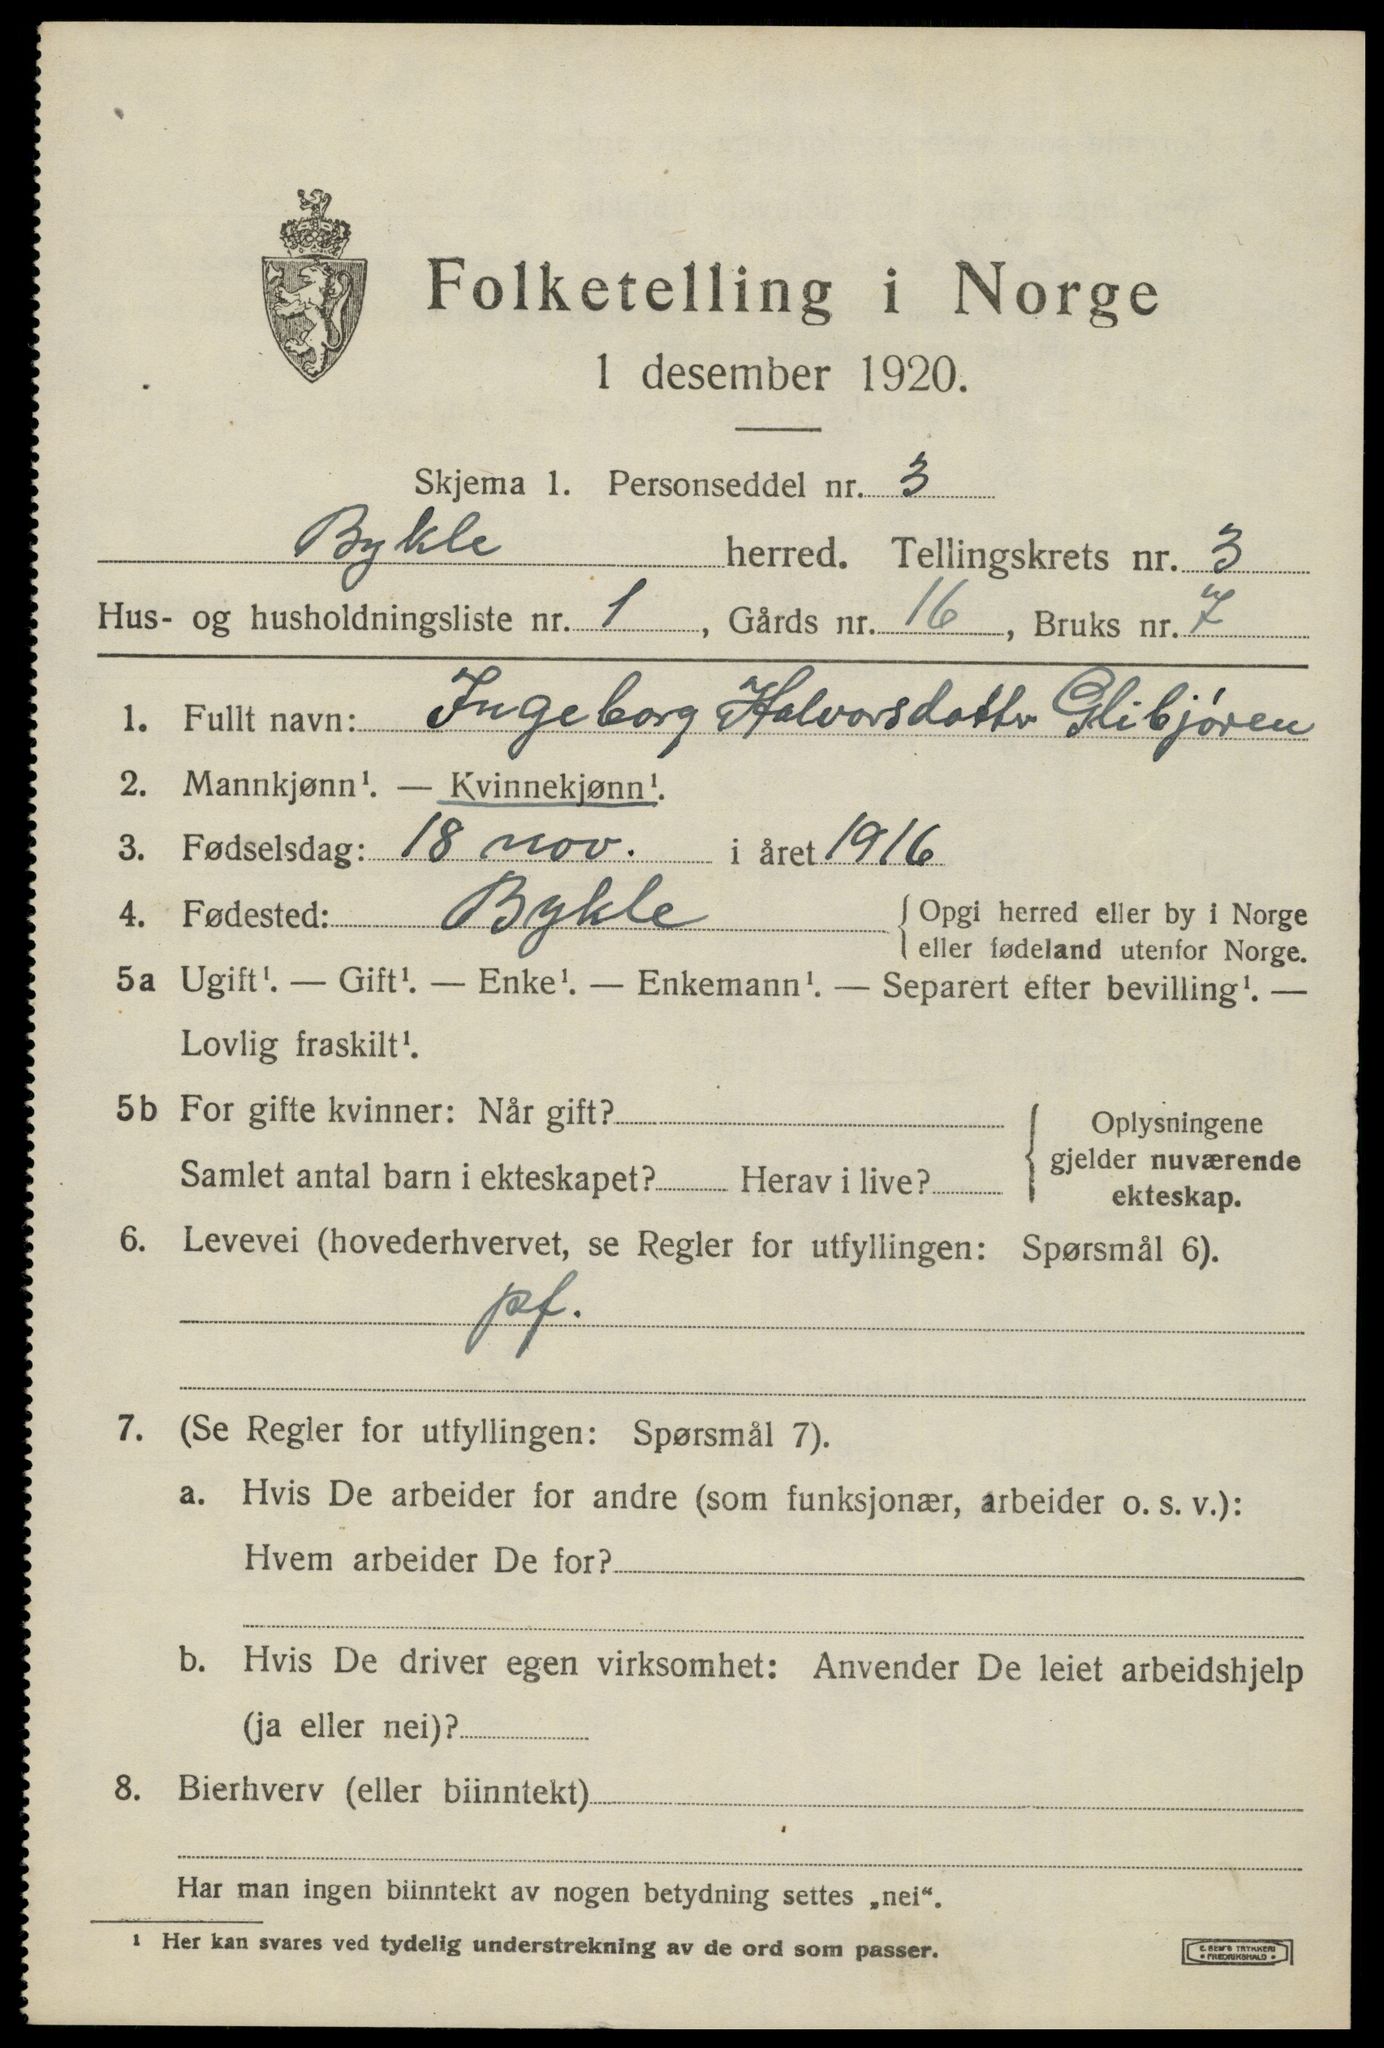 Folketelling i Norge
1 desember 1920.
Skjema 1. Personseddel nr. 3
Bykle herred. Tellingskrets nr. 3
Hus- og husholdningsliste nr. 1, Gårds nr. 16, Bruks nr. 7
1. Fullt navn: Ingeborg Halvorsdatter Glibjören
2. Mannkjønn¹. — Kvinnekjønn¹.
3. Fødselsdag: 18 nov. i året 1916
4. Fødested: Bykle { Opgi herred eller by i Norge
eller fødeland utenfor Norge.
5a Ugift¹. — Gift¹. — Enke¹. — Enkemann¹. — Separert efter bevilling¹. —
Lovlig fraskilt¹.
5b For gifte kvinner: Når gift? { Oplysningene
gjelder nuværende
Samlet antal barn i ekteskapet? Herav i live?
ekteskap.
6. Levevei (hovederhvervet, se Regler for utfyllingen: Spørsmål 6).
pf.
7. (Se Regler for utfyllingen: Spørsmål 7).
a. Hvis De arbeider for andre (som funksjonær, arbeider o. s. v.):
Hvem arbeider De for?
b. Hvis De driver egen virksomhet: Anvender De leiet arbeidshjelp
(ja eller nei)?
8. Bierhverv (eller biinntekt)
Har man ingen biinntekt av nogen betydning settes „nei“.
¹ Her kan svares ved tydelig understrekning av de ord som passer.
E. SEM'S TRYKKERI
• FREDRIKSHALD •